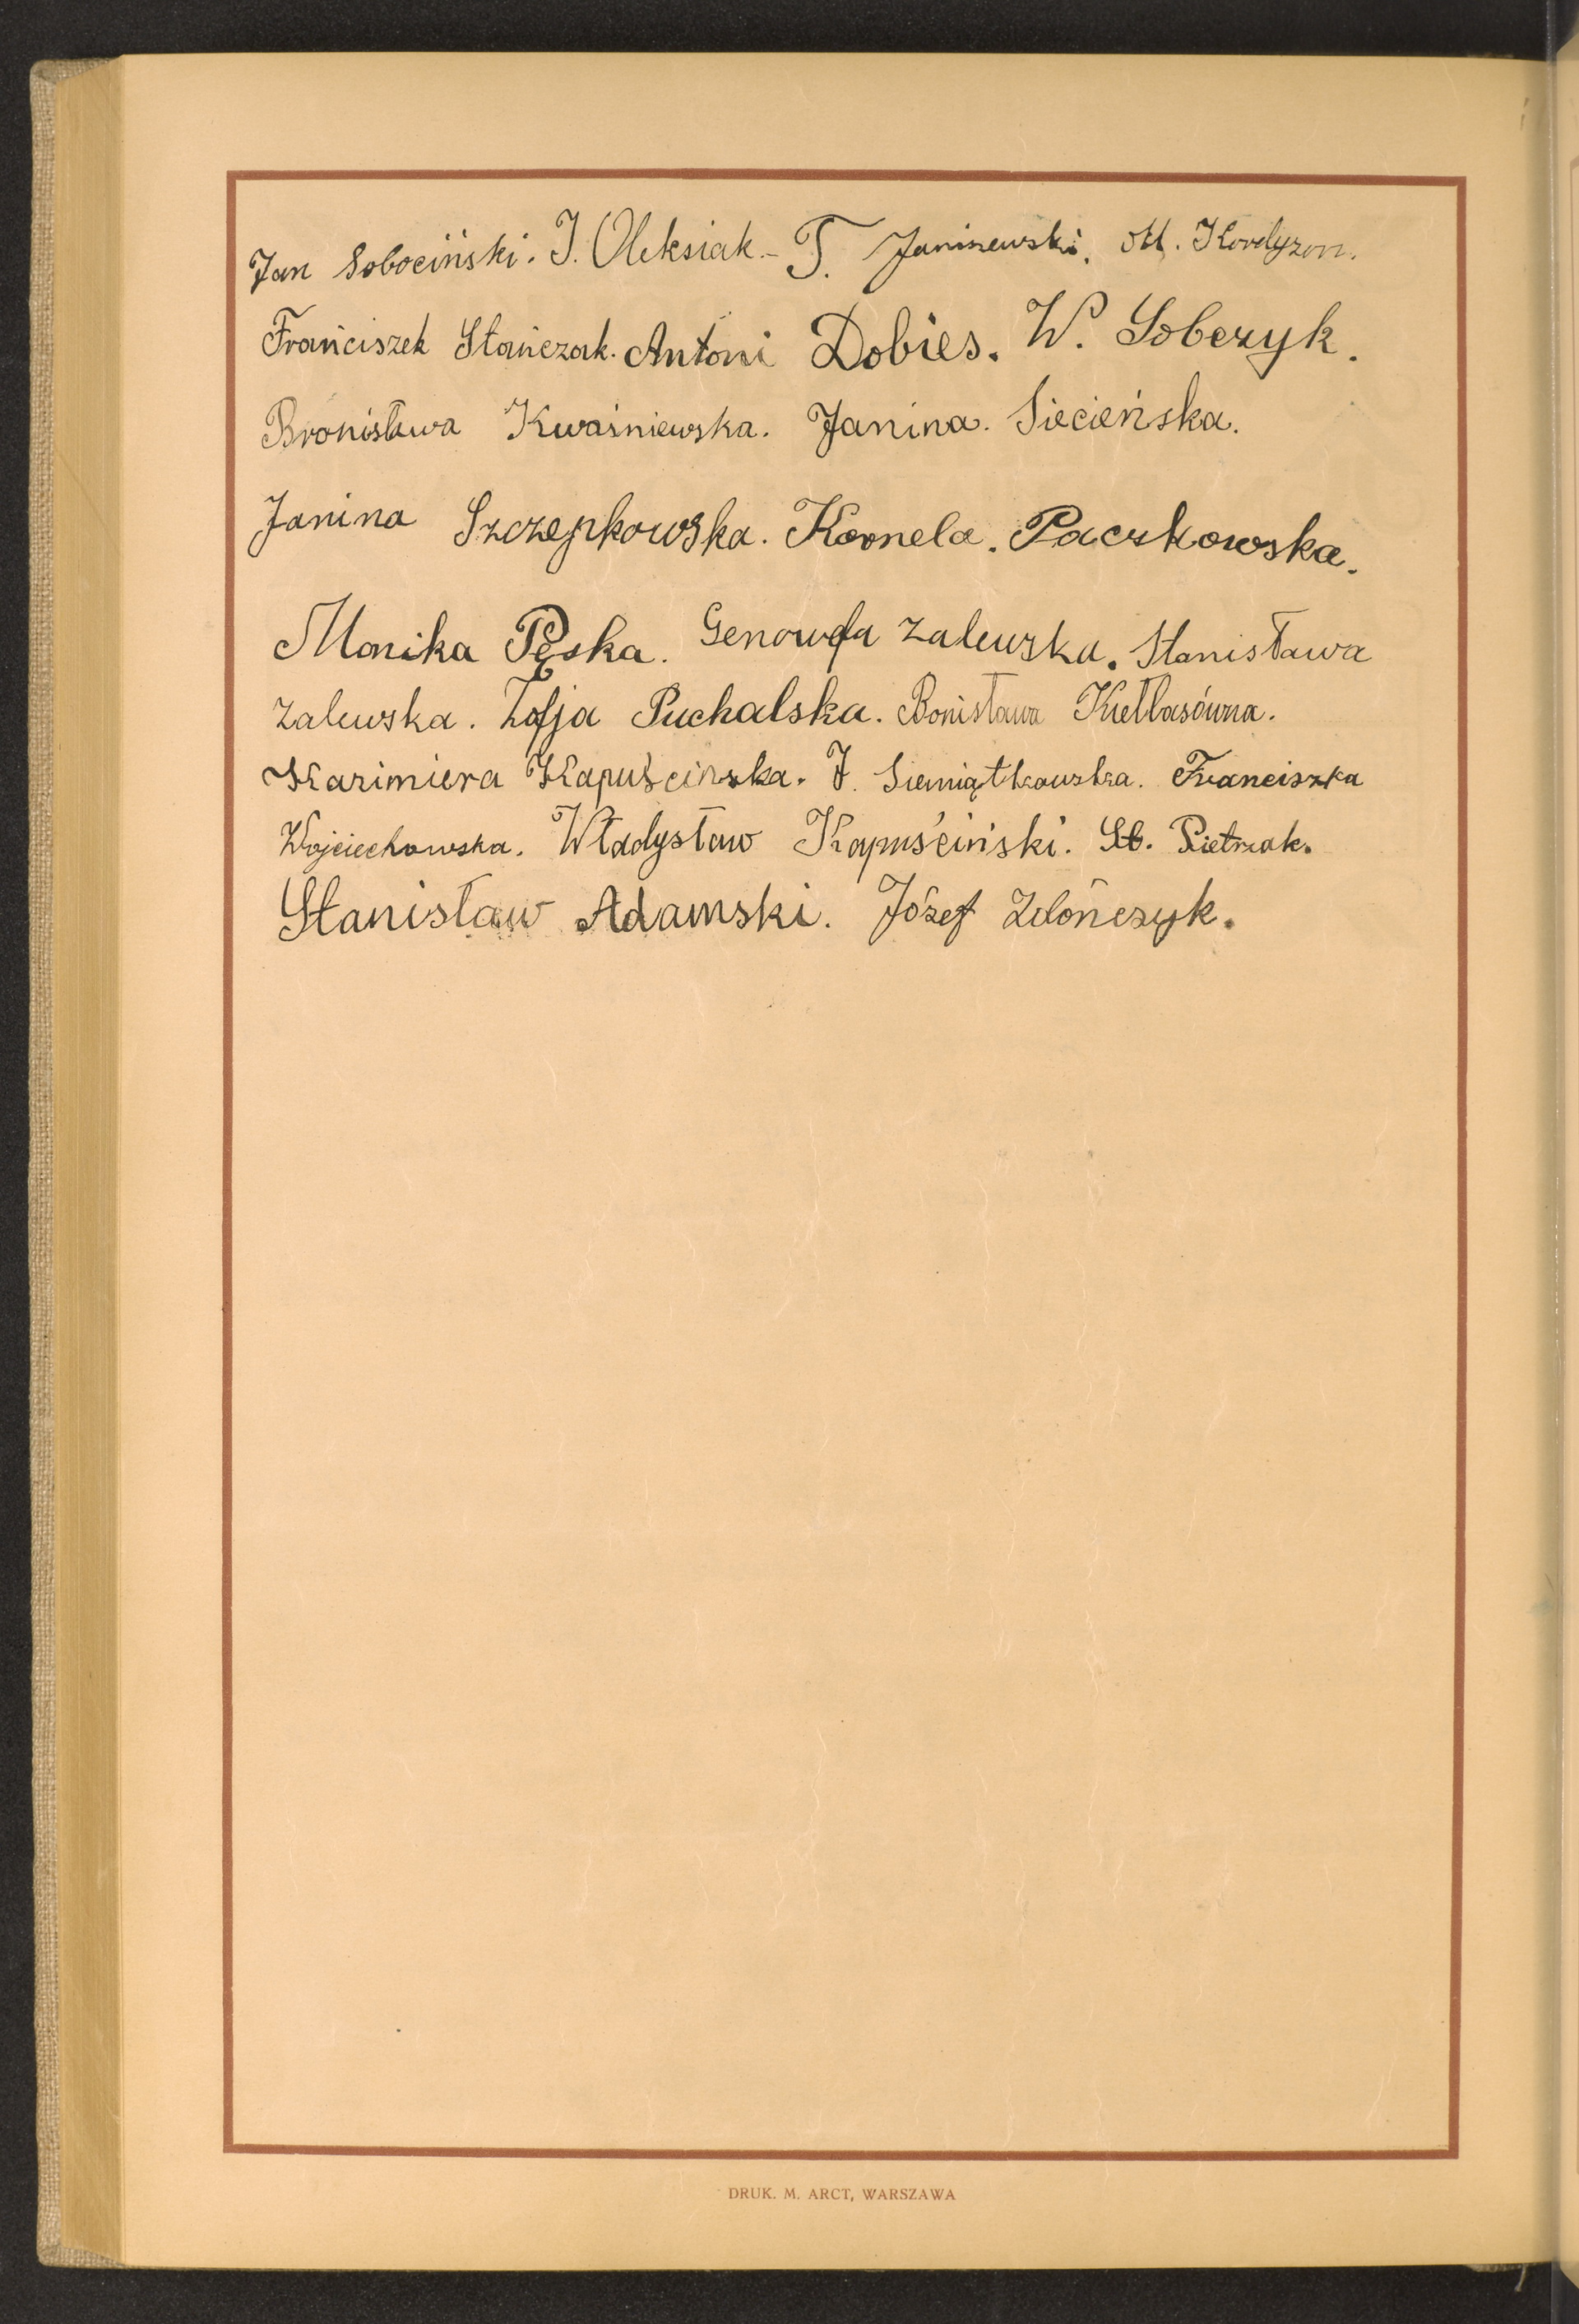 Jan Sobociński. J. Oleksiak.- T. Janiszewski. M. Kordyzon.
Franciszek Stańczak. Antoni Dobies. W. Sobczyk.
Bronisława Kwaśniewska. Janina. Siecieńska.
Janina Szczepkowska. Kornela. Paczkowska.
Monika Pęska. Genowefa Zalewska. Stanisława
Zalewska. Zofja Puchalska. Bonisława Kiełbasówna.
Kazimiera Kapuścinska. J. Siemiątkowska. Franciszka
Wojciechowska. Władysław Kapuściński. St. Pietrzak.
Stanisław Adamski. Józef
DRUK. M. ARCT, WARSZAWA